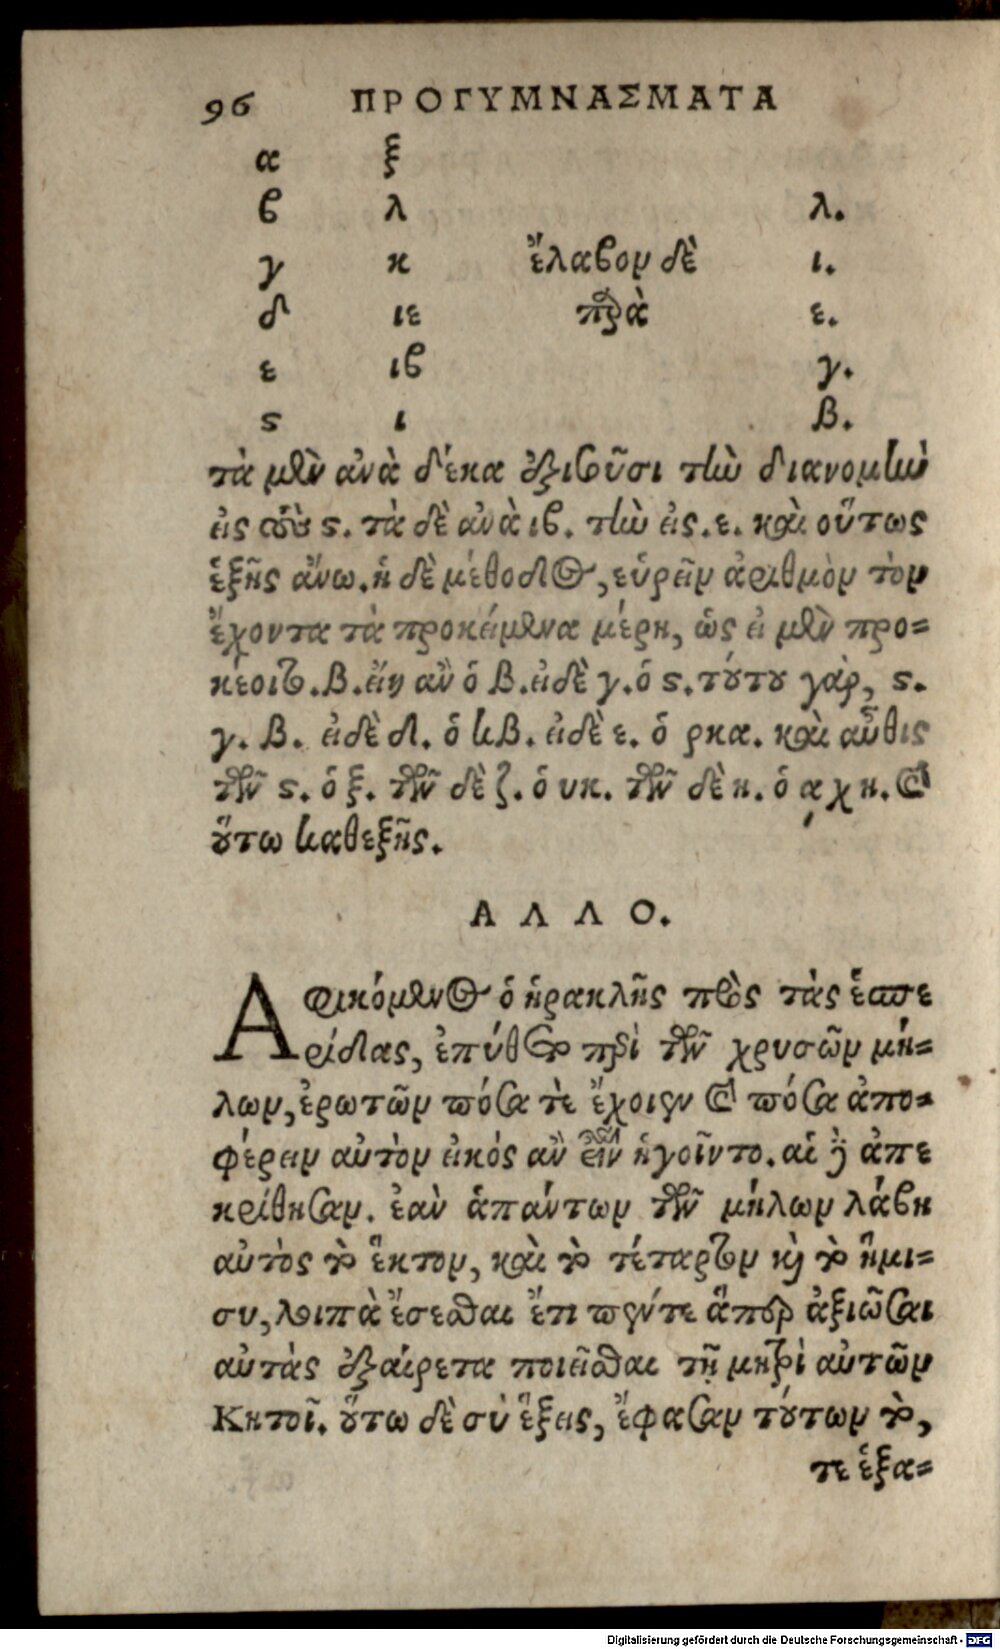 96 ΠΡΟΓΥΜΝΑΣΜΑΤΑ
α ξ
β λ λ.
γ κ ἔλαβον δὲ ι.
δ ιε παρὰ ε.
ε ιβ γ.
ϛ ι β.
τὰ μὲν ἀνὰ δέκα ἐξισοῦσι τὴν διανομὴν
εἰς τοὺς ϛ. τὰ δὲ ἀνὰ ιβ. τὴν εἰς. ε. καὶ οὕτως
ἑξῆς ἄνω. ἡ δὲ μέθοδος, εὑρεῖν ἀριθμὸν τὸν
ἔχοντα τὰ προκείμενα μέρη, ὡς εἰ μὲν προ=
κέοιτο. β. εἴη ἂν ὁ β. εἰ δὲ γ. ὁ ϛ. τούτου γὰρ, ϛ.
γ. β. εἰ δὲ δ. ὁ κβ. εἰ δὲ ε. ὁ ρκα. καὶ αὖθις
τῶν ϛ. ὁ ξ. τῶν δὲ ζ. ὁ υκ. τῶν δὲ η. ὁ ͵αχη. καὶ
οὕτω καθεξῆς.
ΑΛΛΟ.
Αφικόμενος ὁ ἡρακλῆς πρὸς τὰς ἑσπε
ρίδας, ἐπύθετο περὶ τῶν χρυσῶν μή=
λων, ἐρωτῶν πόσα τὲ ἔχοιεν καὶ πόσα ἀπο=
φέρειν αὐτὸν εἰκός ἂν εἶναι ἡγοῖντο. αἱ δὲ ἀπε
κρίθησαν. ἐὰν ἁπάντων τῶν μήλων λάβῃ
αὐτὸς τὸ ἕκτον, καὶ τὸ τέταρτον καὶ τὸ ἥμι=
συ, λοιπὰ ἔσεσθαι ἔτι πέντε ἅπερ ἀξιῶσαι
αὐτὰς ἐξαίρετα ποιεῖσθαι τῇ μητρὶ αὐτῶν
Κητοῖ. οὕτω δὲ σὺ ἕξεις, ἔφασαν τούτων τὸ,
τε ἑξα=
Digitalisierung gefördert durch die Deutsche Forschungsgemeinschaft - DFG